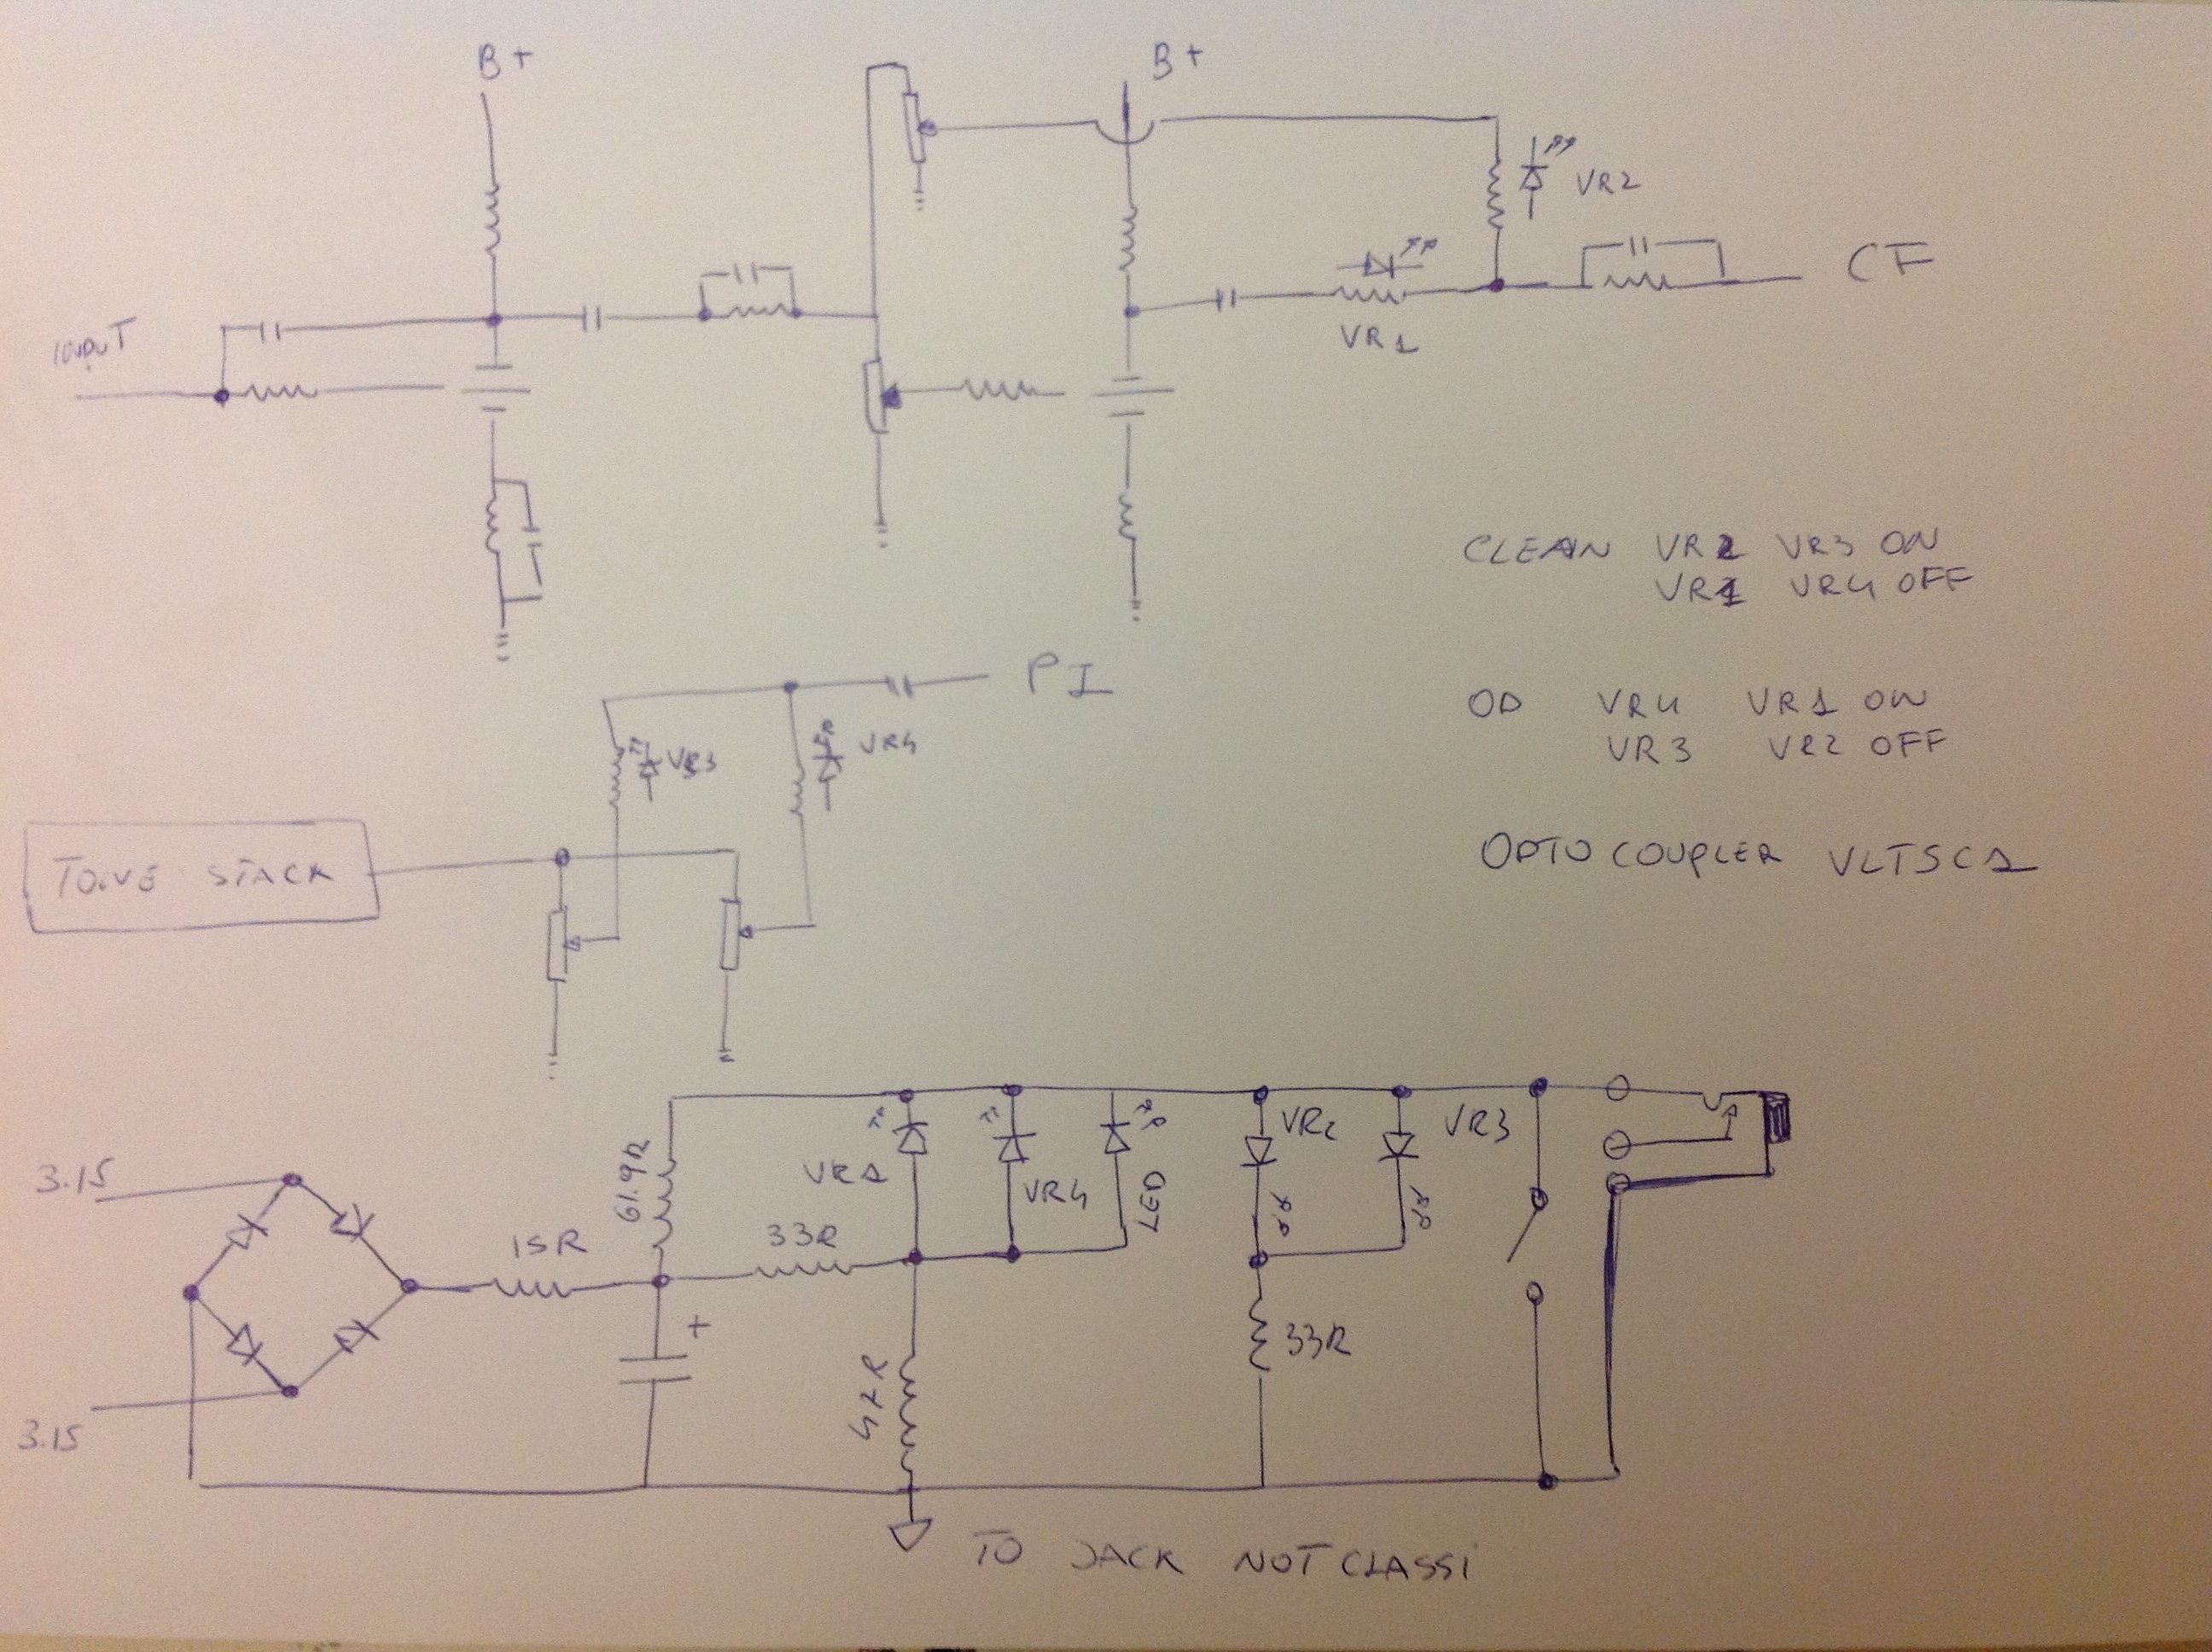 B+
B+
VR2
CF
INPUT
VR1
CLEAN VR2 VR3 ON
VR1 VR4 OFF
PI
OD VR4 VR1 ON
VR3 VR2 OFF
VR3
VR4
TONE STACK
OPTO COUPLER VLT5C1
3.15
61.9R
VR1
VR4
LED
VR2
VR3
15R
33R
+
33R
47R
3.15
TO JACK NOT CLASSI